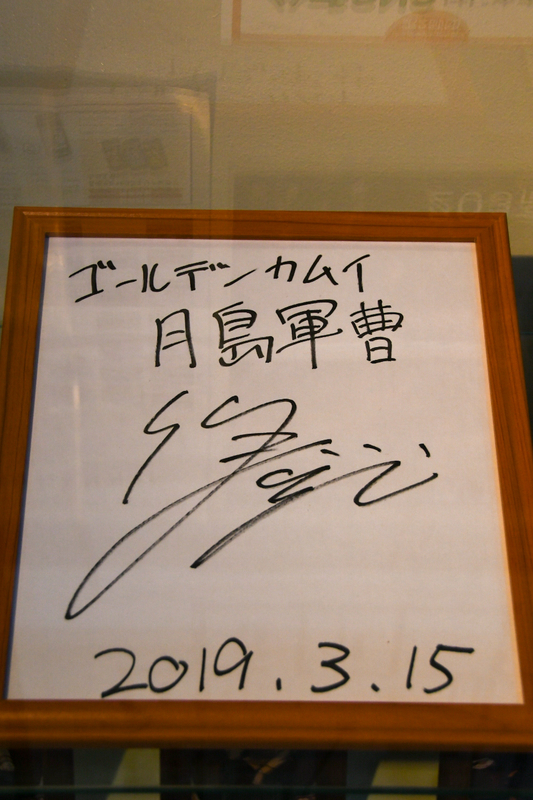 ゴールデンカムイ
月島軍曹
2019.3.15